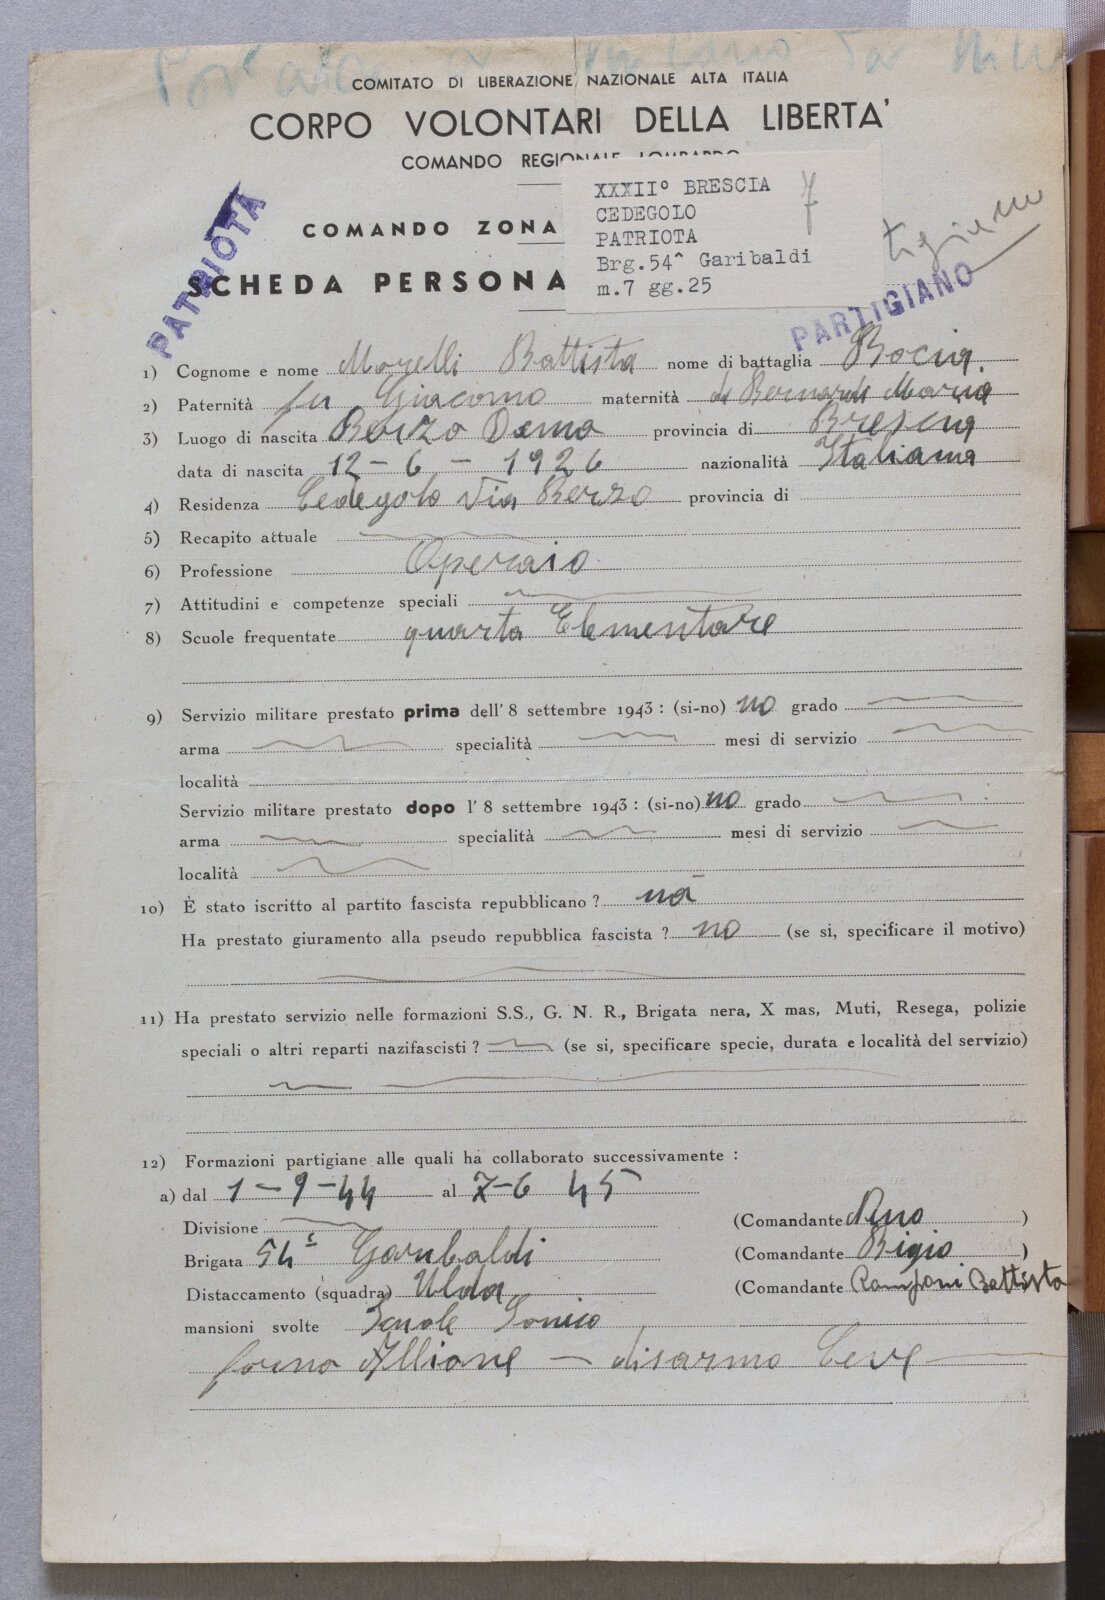 COMITATO DI LIBERAZIONE NAZIONALE ALTA ITALIA
CORPO VOLONTARI DELLA LIBERTA'
COMANDO REGIONALE LOMBARDO
XXXIIº BRESCIA
7
CEDEGOLO
PATRIOTA
Brg.54^ Garibaldi
m.7 gg.25
PATRIOTA
COMANDO ZONA
SCHEDA PERSONA
PARTIGIANO
1) Cognome e nome Morelli Battista nome di battaglia Bocia
2) Paternità fu Giacomo maternità di Bernardi Maria
3) Luogo di nascita Berzo Demo provincia di Brescia
data di nascita 12-6-1926 nazionalità Italiana
4) Residenza Cedegolo Via Berzo provincia di
5) Recapito attuale
6) Professione Operaio
7) Attitudini e competenze speciali
8) Scuole frequentate quarta Elementare
9) Servizio militare prestato prima dell' 8 settembre 1943 : (si-no) no grado
arma specialità mesi di servizio
località
Servizio militare prestato dopo l' 8 settembre 1943 : (si-no) no grado
arma specialità mesi di servizio
località
10) È stato iscritto al partito fascista repubblicano ? no
Ha prestato giuramento alla pseudo repubblica fascista ? no (se si, specificare il motivo)
11) Ha prestato servizio nelle formazioni S.S., G. N. R., Brigata nera, X mas, Muti, Resega, polizie
speciali o altri reparti nazifascisti ? (se si, specificare specie, durata e località del servizio)
12) Formazioni partigiane alle quali ha collaborato successivamente :
a) dal 1-9-44 al 7-6 45
Divisione (Comandante Nino )
Brigata 54ª Garibaldi (Comandante Bigio )
Distaccamento (squadra) (Comandante Ramponi Battista
mansioni svolte Scuole Sonico
forno Allione - disarmo Ceve